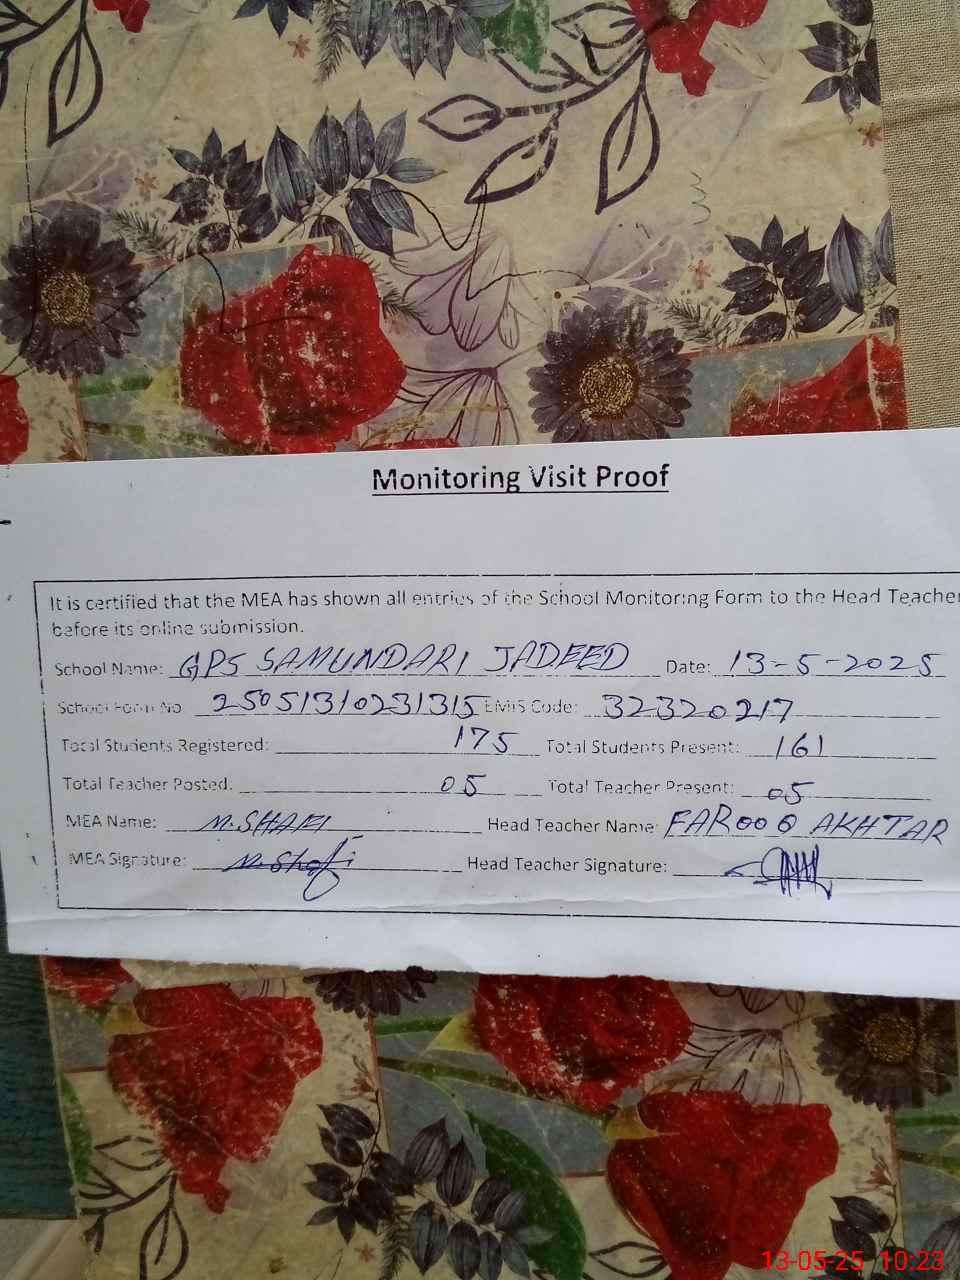 Monitoring Visit Proof
It is certified that the MEA has shown all entries of the School Monitoring Form to the Head Teacher
before its online submission.
School Name: GPS SAMUNDARI JADEED Date: 13-5-2025
School Form No 25051310231315 EMIS Code: 32320217
Total Students Registered: 175 Total Students Present: 161
Total Teacher Posted: 05 Total Teacher Present: 05
MEA Name: M. SHAFI Head Teacher Name: FAROOQ AKHTAR
MEA Signature: M. Shafi Head Teacher Signature:
13-05-25 10:23